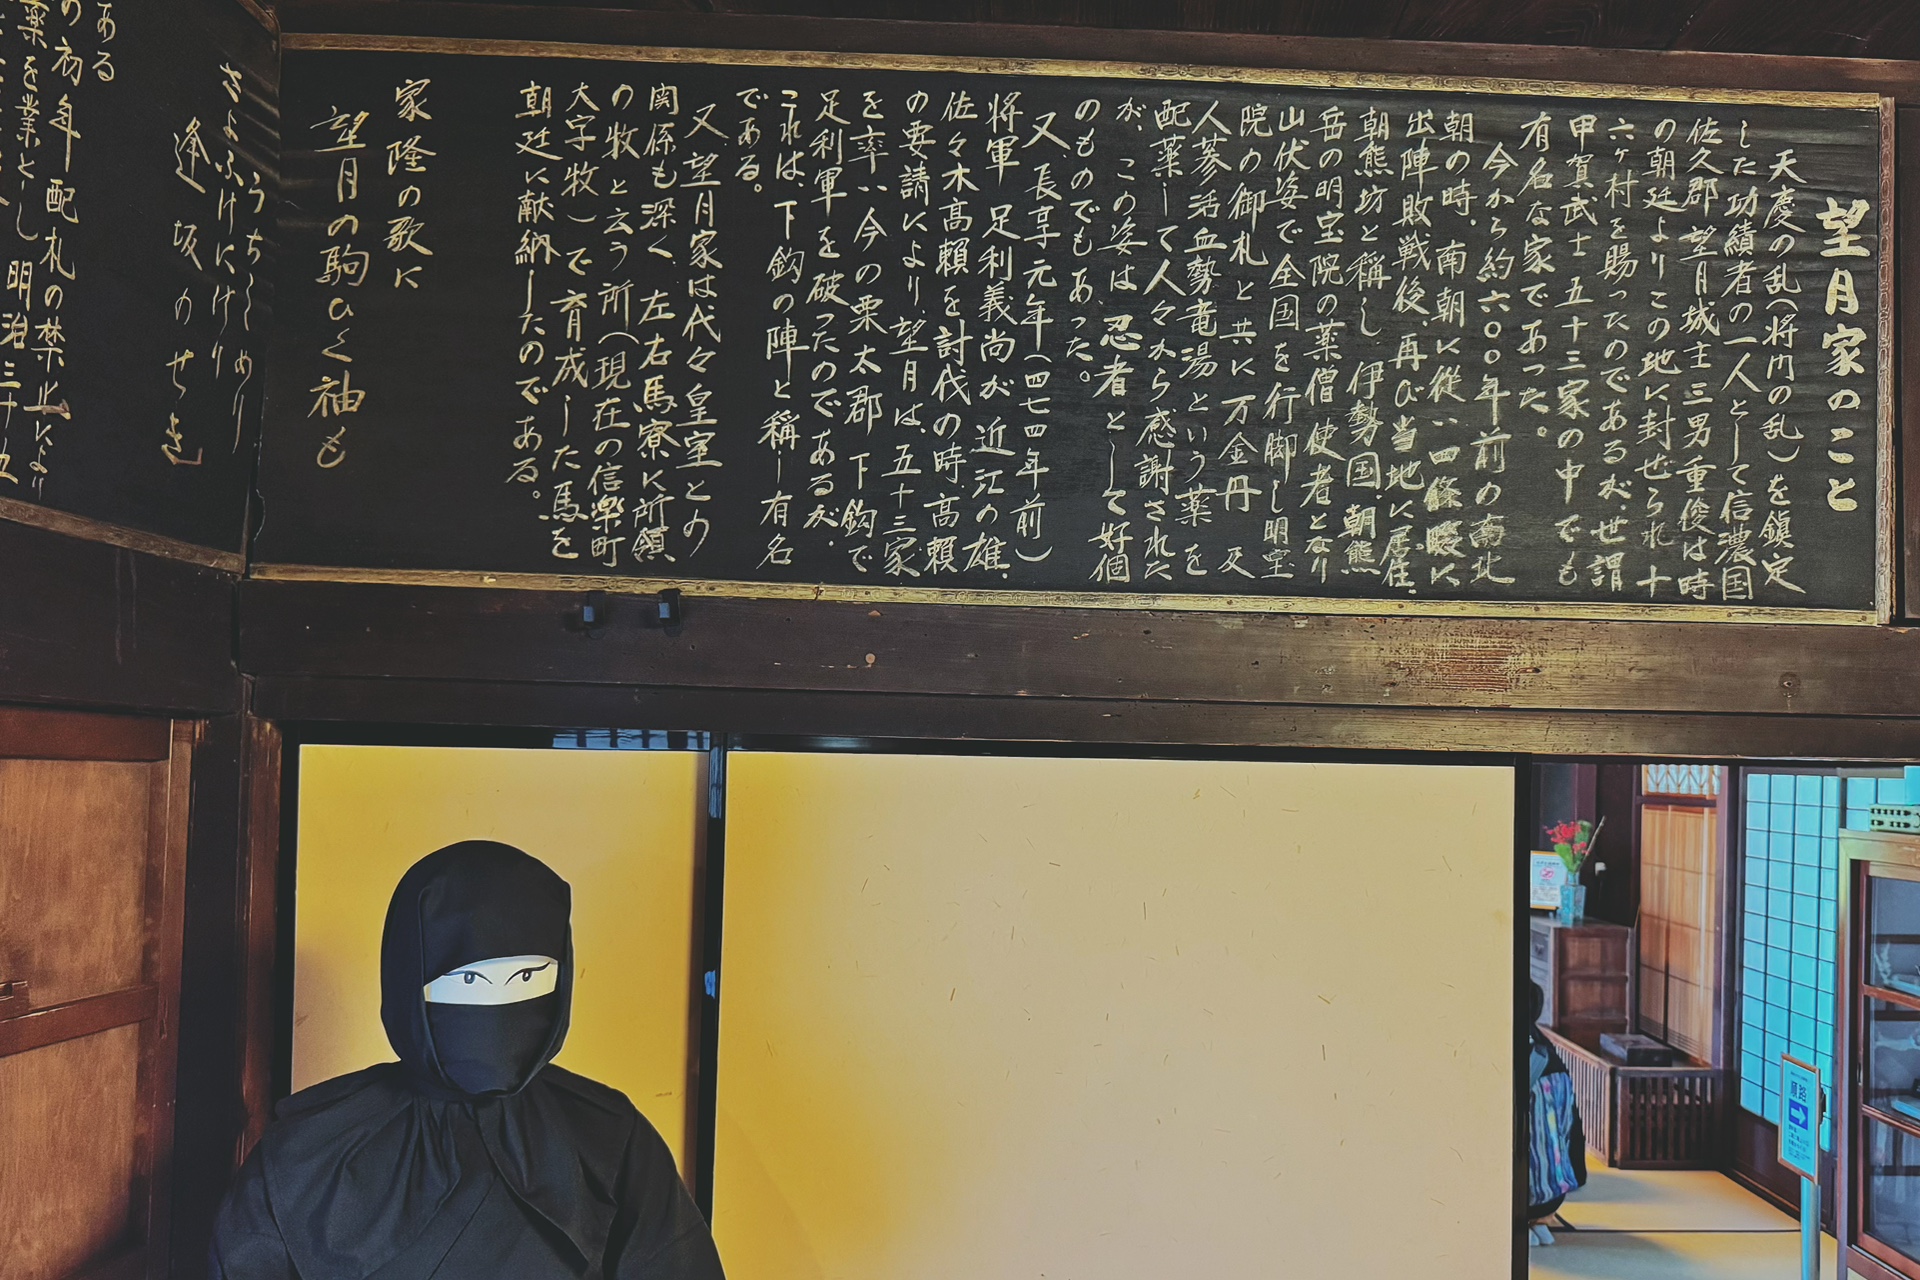 望月家のこと
天慶の乱(将門の乱)を鎮定
した功績者の一人として信濃国
佐久郡望月城主三男重俊は時
の朝廷よりこの地に封ぜられ十
六ヶ村を賜ったのであるが、世謂
甲賀武士五十三家の中でも
有名な家であった。
今から約六〇〇年前の南北
朝の時、南朝に従い四條畷に
出陣敗戦後、再び当地に居住、
朝熊坊と称し伊勢国、朝熊
岳の明宝院の薬僧使者となり
山伏姿で全国を行脚し明宝
院の御札と共に万金丹及
人参活血勢竜湯という薬を
配薬して人々から感謝された
が、この姿は忍者として好個
のものでもあった。
又、長享元年(四七四年前)
将軍足利義尚が近江の雄、
佐々木高頼を討伐の時高頼
の要請により、望月は、五十三家
を率い今の栗太郡下鈎で
足利軍を破ったのであるが、
これは、下鈎の陣と稱し有名
である。
又、望月家は代々皇室との
関係も深く、左右馬寮に所領
の牧と云う所(現在の信楽町
大字牧)で育成した馬を
朝廷に献納したのである。
家隆の歌に
望月の駒ひく袖も
うちしめり
さよふけにけり
逢坂のせき
ある
の初年配札の禁止により
薬を業とし明治三十五